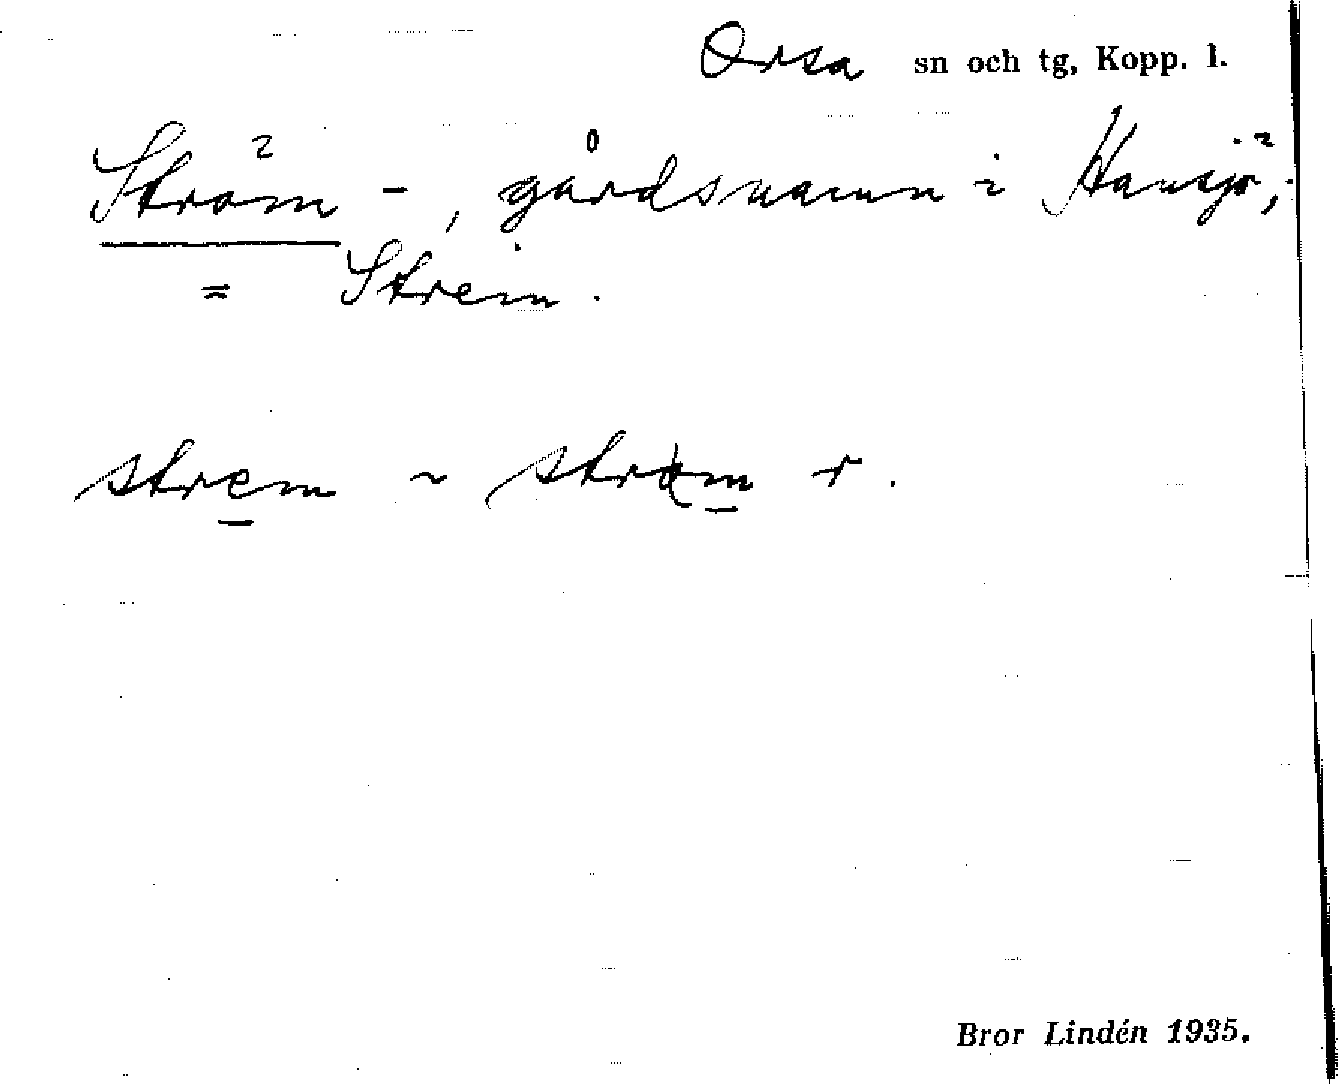 Orsa sn och tg, Kopp. l.
Ström-, gårdsnamn i Hansjö;
= Streim.
strem ~ r.
Bror Lindén 1935.